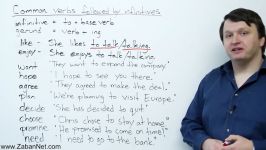 Common verbs followed by infinitives
infinitive = to + base verb
gerund = verb + ing
like - She likes to talk/talking.
enjoy - She enjoys to talk/talking.
want "They want to expand the company."
hope "I hope to see you there."
agree "They agreed to make the deal."
plan "We're planning to visit Europe."
decide "She has decided to quit."
choose "Chris chose to stay at home."
promise "He promised to come on time."
need "I need to go to the bank."
www.ZabanNet.com